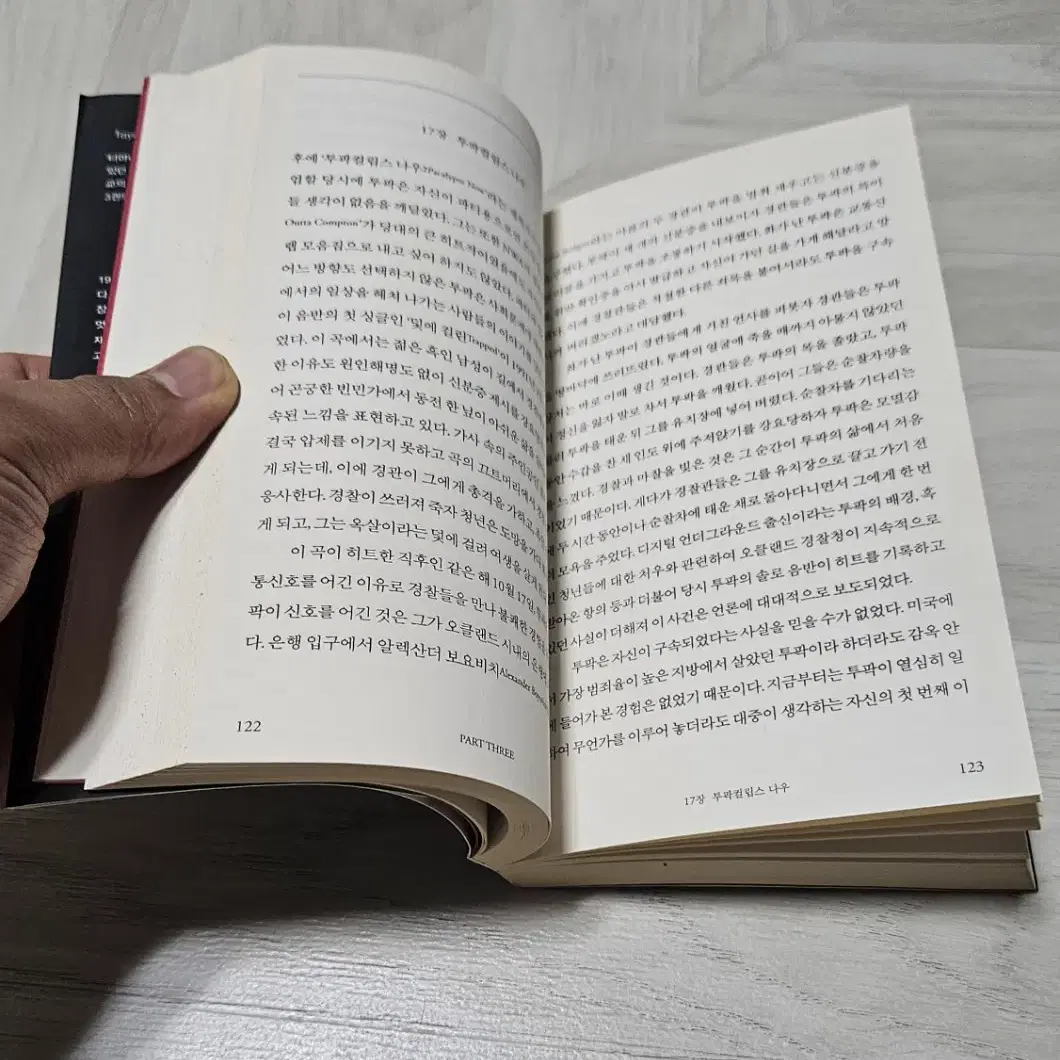 17장 투팍컬립스 나우
후에 '투팍컬립스 나우2Pacalypse Now'라는
엄할 당시에 투팍은 자신이 파티용으로만
들 생각이 없음을 깨달았다. 그는 또한 NWA의
Outta Compton'가 당대의 큰 히트작이었음에도
랩 모음집으로 내고 싶어 하지도 않았다.
어느 방향도 선택하지 않은 투팍은 사회문제와
에서의 일상을 헤쳐 나가는 사람들의 이야기를
이 음반의 첫 싱글인 '덫에 걸린Trapped'이 1991년
었다. 이 곡에서는 젊은 흑인 남성이 길에서
한 이유도 원인해명도 없이 신분증 제시를
어 곤궁한 빈민가에서 동전 한 닢이 아쉬운 삶을
속된 느낌을 표현하고 있다. 가사 속의 주인공은
결국 압제를 이기지 못하고 곡의 끄트머리에서
게 되는데, 이에 경관이 그에게 총격을 가하고,
응사한다. 경찰이 쓰러져 죽자 청년은 도망을
게 되고, 그는 옥살이라는 덫에 걸려 여생을
이 곡이 히트한 직후인 같은 해 10월 17일,
통신호를 어긴 이유로 경찰들을 만나 불쾌한
팍이 신호를 어긴 것은 그가 오클랜드 시내의
다. 은행 입구에서 알렉산더 보요비치Alexander
122
PART THREE
라는 이름의 두 경관이 투팍을 멈춰 세우고는 신분증을
투팍이 세 개의 신분증을 내보이자 경관들은 투팍의 특이
가지고 투팍을 조롱하기 시작했다. 화가 난 투팍은 교통신
확인증을 어서 발급하고 자신이 가던 길을 가게 해달라고 말
이에 경찰관들은 적절한 다른 죄목을 붙여서라도 투팍을 구속
버리겠노라고 대답했다.
화가 난 투팍이 경관들에게 거친 언사를 퍼붓자 경관들은 투팍
쓰러뜨렸다. 투팍의 얼굴에 죽을 때까지 아물지 않았던
바로 이때 생긴 것이다. 경관들은 투팍의 목을 졸랐고, 투팍
정신을 잃자 발로 차서 투팍을 깨웠다. 곧이어 그들은 순찰차량을
투팍을 태운 뒤 그를 유치장에 넣어 버렸다. 순찰차를 기다리는
수갑을 찬 채 인도 위에 주저앉기를 강요당하자 투팍은 모멸감
느꼈다. 경찰과 마찰을 빚은 것은 그 순간이 투팍의 삶에서 처음
이었기 때문이다. 게다가 경찰관들은 그를 유치장으로 끌고 가기 전
두 시간 동안이나 순찰차에 태운 채로 돌아다니면서 그에게 한 번
모욕을 주었다. 디지털 언더그라운드 출신이라는 투팍의 배경, 흑
인 청년들에 대한 처우와 관련하여 오클랜드 경찰청이 지속적으로
받아온 항의 등과 더불어 당시 투팍의 솔로 음반이 히트를 기록하고
있던 사실이 더해져 이 사건은 언론에 대대적으로 보도되었다.
투팍은 자신이 구속되었다는 사실을 믿을 수가 없었다. 미국에
가장 범죄율이 높은 지방에서 살았던 투팍이라 하더라도 감옥 안
에 들어가 본 경험은 없었기 때문이다. 지금부터는 투팍이 열심히 일
하여 무언가를 이루어 놓더라도 대중이 생각하는 자신의 첫 번째 이
123
17장 투팍컬립스 나우